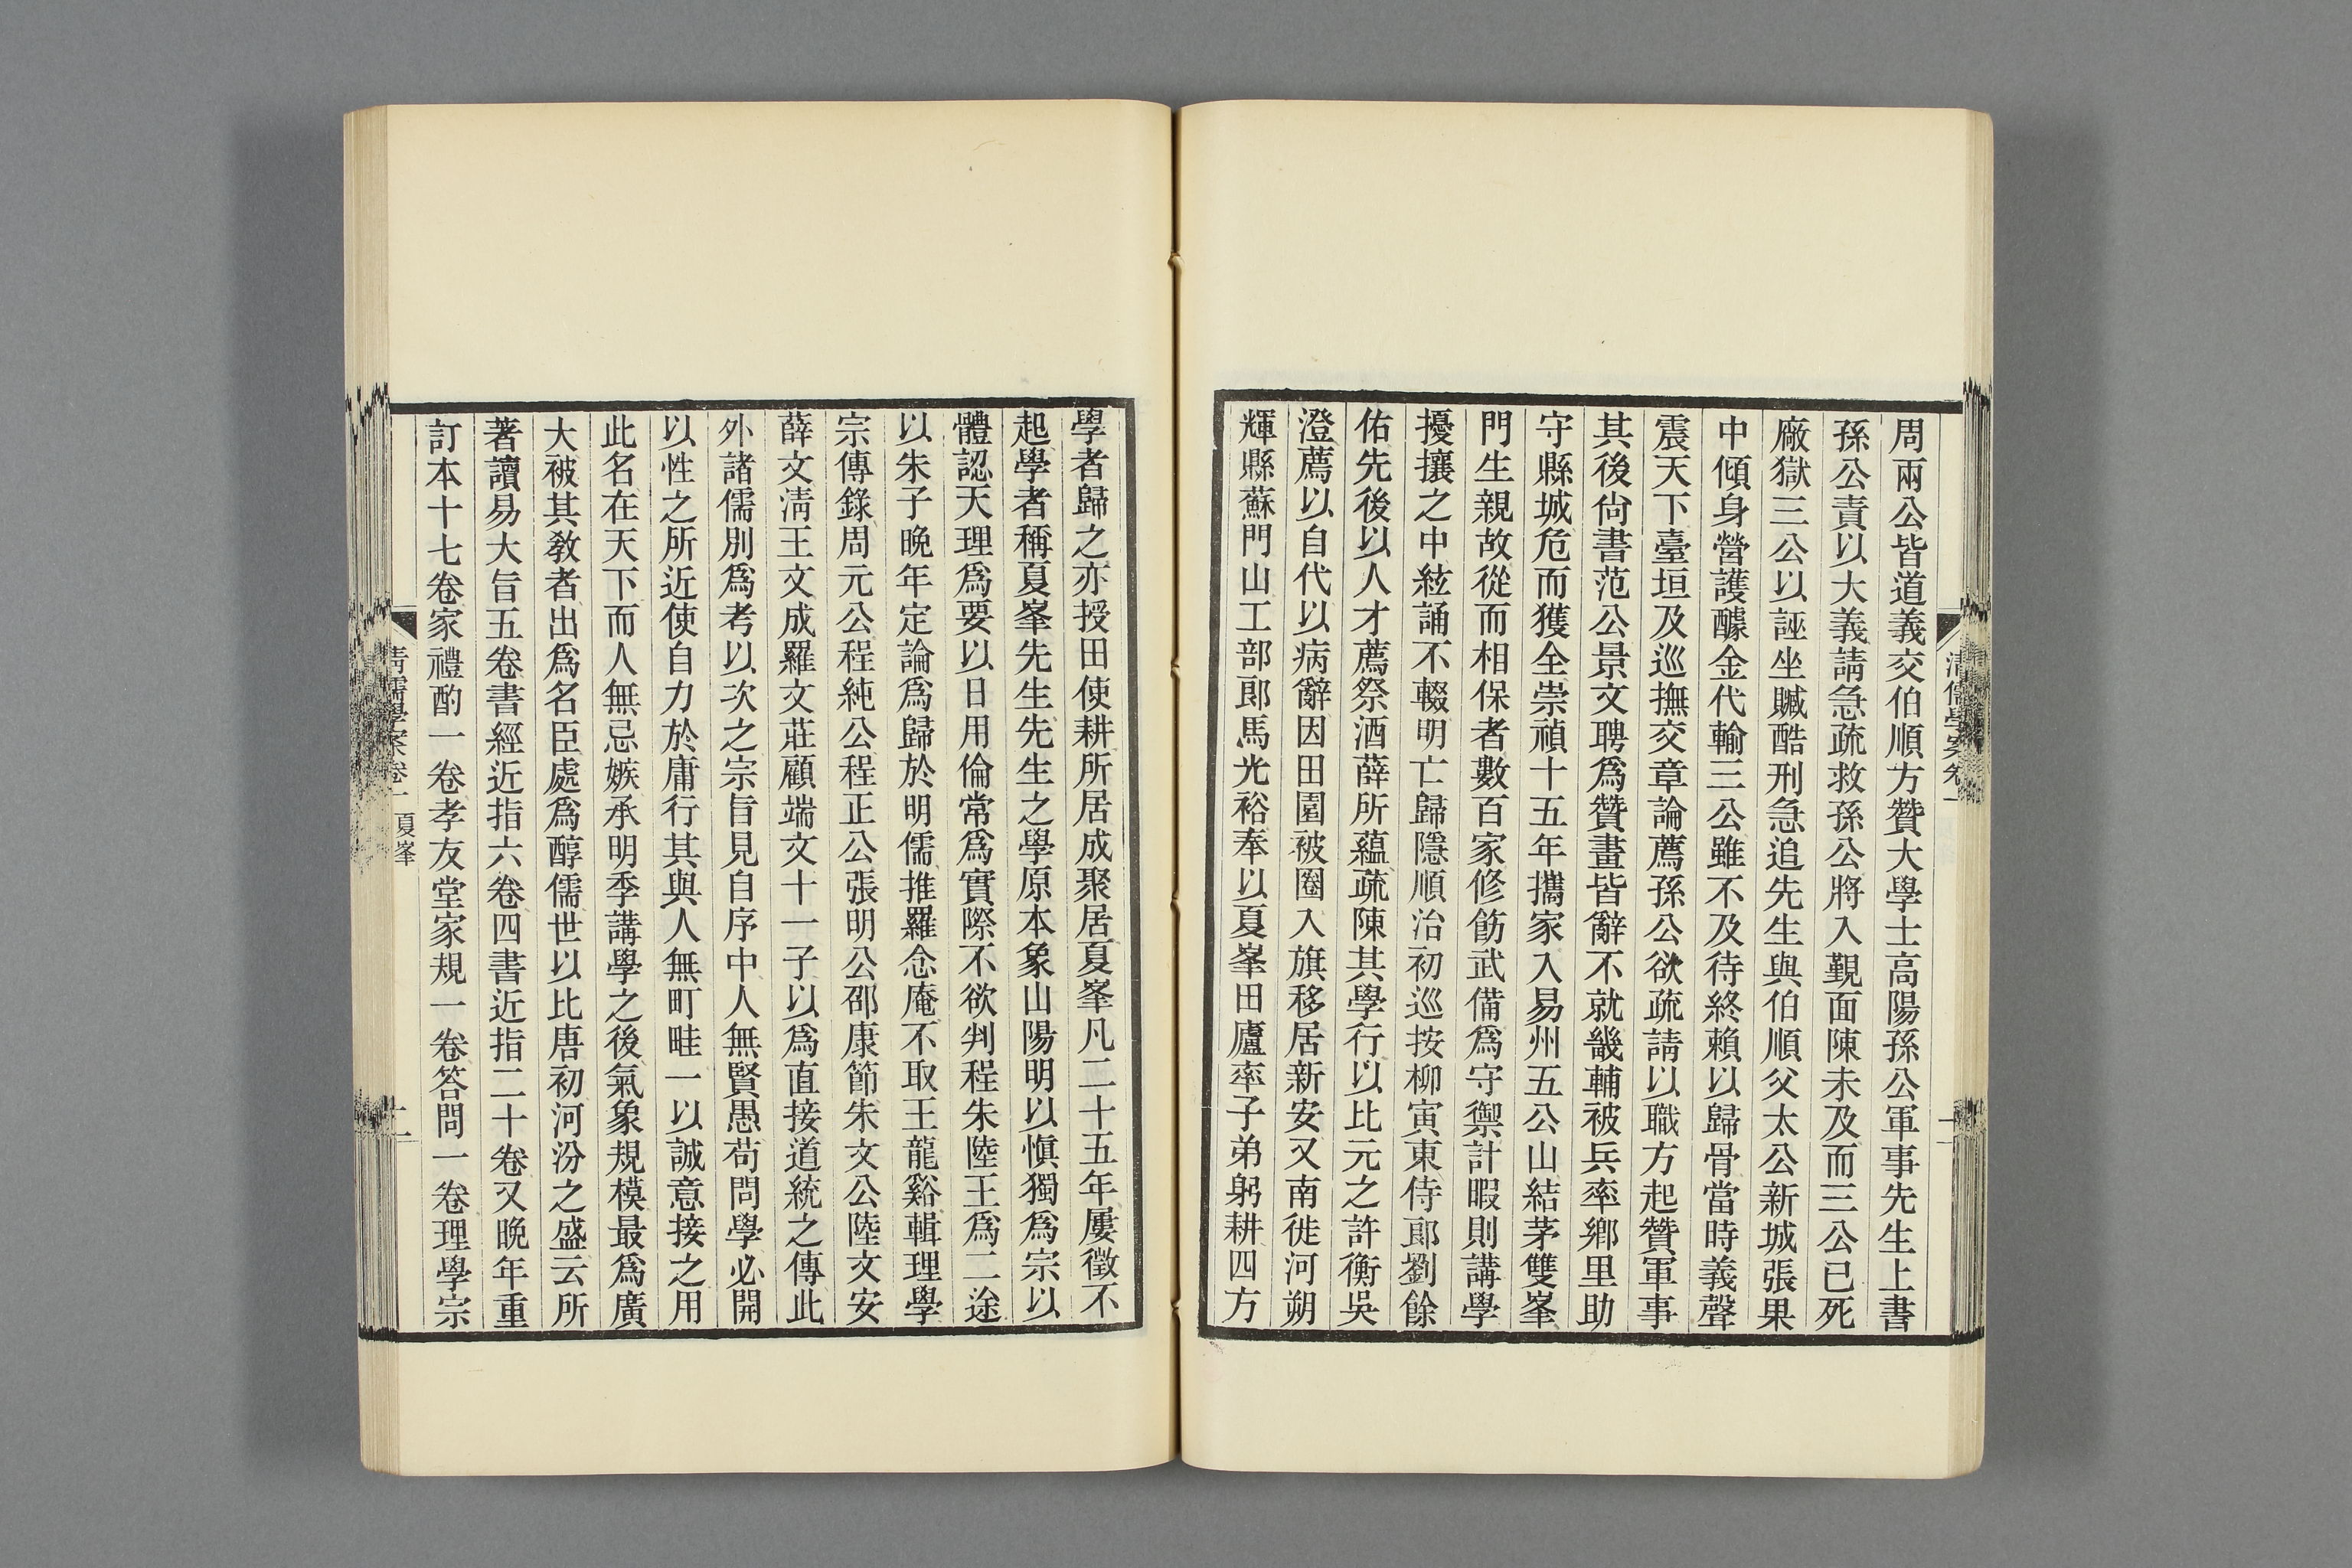 周兩公皆道義交伯順方贊大學士高陽孫公軍事先生上書
孫公責以大義請急疏救孫公將入覲面陳未及而三公已死
廠獄三公以誣坐贓酷刑急追先生與伯順父太公新城張果
中傾身營護醵金代輸三公雖不及待終賴以歸骨當時義聲
震天下臺垣及巡撫交章論薦孫公欲疏請以職方起贊軍事
其後尙書范公景文聘爲贊畫皆辭不就畿輔被兵率鄉里助
守縣城危而獲全崇禎十五年攜家入易州五公山結茅雙峯
門生親故從而相保者數百家修飭武備爲守禦計暇則講學
擾攘之中絃誦不輟明亡歸隱順治初巡按柳寅東侍郞劉餘
佑先後以人才薦祭酒薛所蘊疏陳其學行以比元之許衡吳
澄薦以自代以病辭因田園被圈入旗移居新安又南徙河朔
輝縣蘇門山工部郞馬光裕奉以夏峯田廬率子弟躬耕四方
清儒學案卷一
學者歸之亦授田使耕所居成聚居夏峯凡二十五年屢徵不
起學者稱夏峯先生先生之學原本象山陽明以愼獨爲宗以
體認天理爲要以日用倫常爲實際不欲判程朱陸王爲二途
以朱子晚年定論爲歸於明儒推羅念庵不取王龍谿輯理學
宗傳錄周元公程純公程正公張明公邵康節朱文公陸文安
薛文淸王文成羅文莊顧端文十一子以爲直接道統之傳此
外諸儒別爲考以次之宗旨見自序中人無賢愚苟問學必開
以性之所近使自力於庸行其與人無町畦一以誠意接之用
此名在天下而人無忌嫉承明季講學之後氣象規模最爲廣
大被其敎者出爲名臣處爲醇儒世以比唐初河汾之盛云所
著讀易大旨五卷書經近指六卷四書近指二十卷又晚年重
訂本十七卷家禮酌一卷孝友堂家規一卷答問一卷理學宗
清儒學案卷一 夏峯